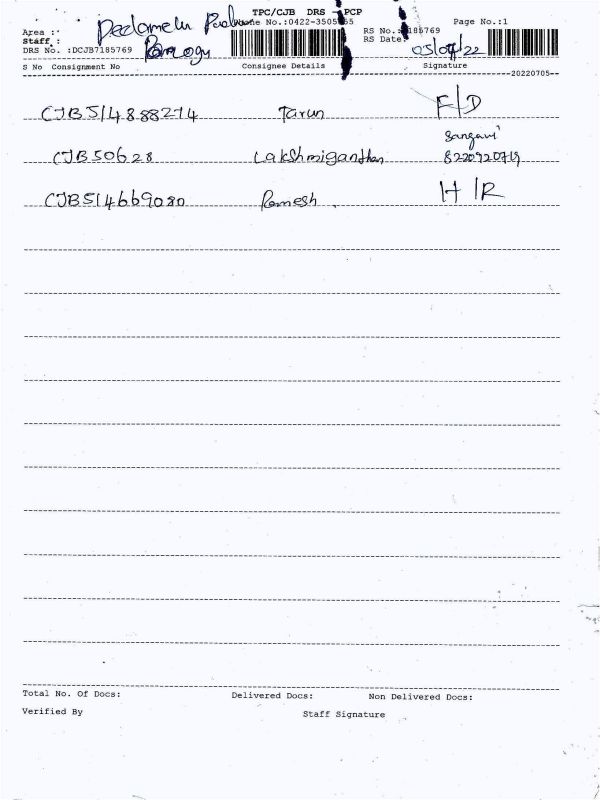 TPC/CJB DRS - PCP
Area :
Phone No.:0422-3505
RS No.: 185769
Page No.:1
Staff :
RS Date: 05/07/22
DRS No. :DCJB7185769
S No Consignment No Consignee Details Signature
20220705
CJB514888274 Tarun F/D
Sangavi
CJB50628 Lakshmiganthan 8220920719
CJB514669080 Ramesh . H/R
Total No. Of Docs: Delivered Docs: Non Delivered Docs:
Verified By Staff Signature